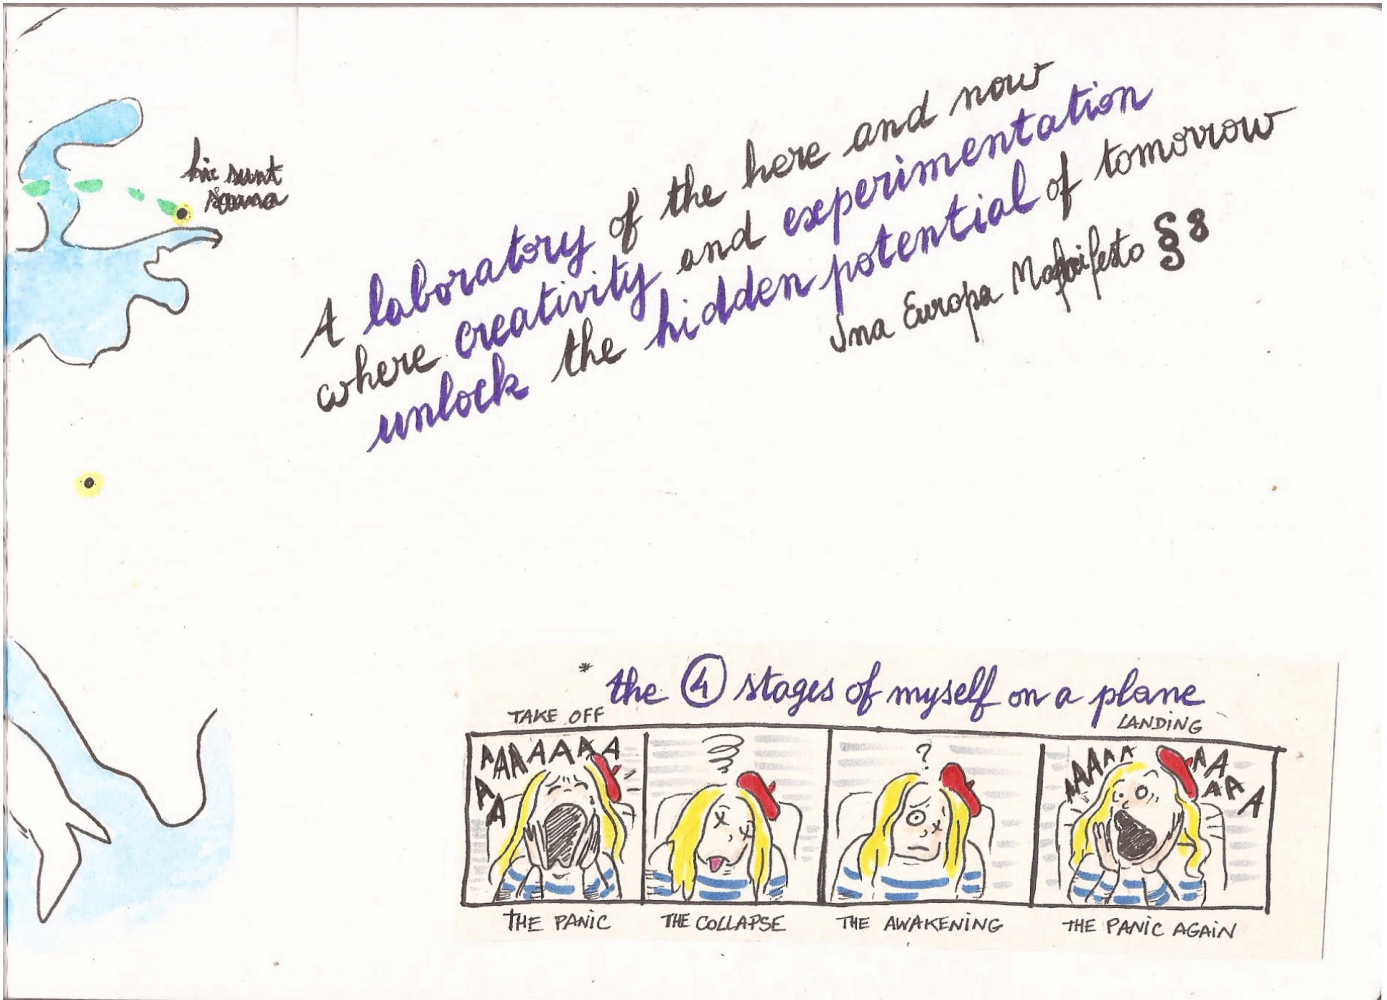 hic sunt
A laboratory of the here and now
where creativity and experimentation
unlock the hidden potential of tomorrow
Una Europa Manifesto §8
* the 4 stages of myself on a plane
TAKE OFF
LANDING
AAAAAAA
AA
?
AAAAA
AAAAA
THE PANIC
THE COLLAPSE
THE AWAKENING
THE PANIC AGAIN